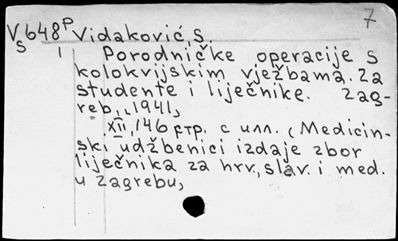 7
V648P Vidaković, S.
S 1
Porodničke operacije s
kolokvijskim vježbama. Za
studente i liječnike. Zag-
reb, 1941,
XII, 146 стр. с илл. (Medicin-
ski udžbenici izdaje zbor
liječnika za hrv., slav. i med.
u Zagrebu,